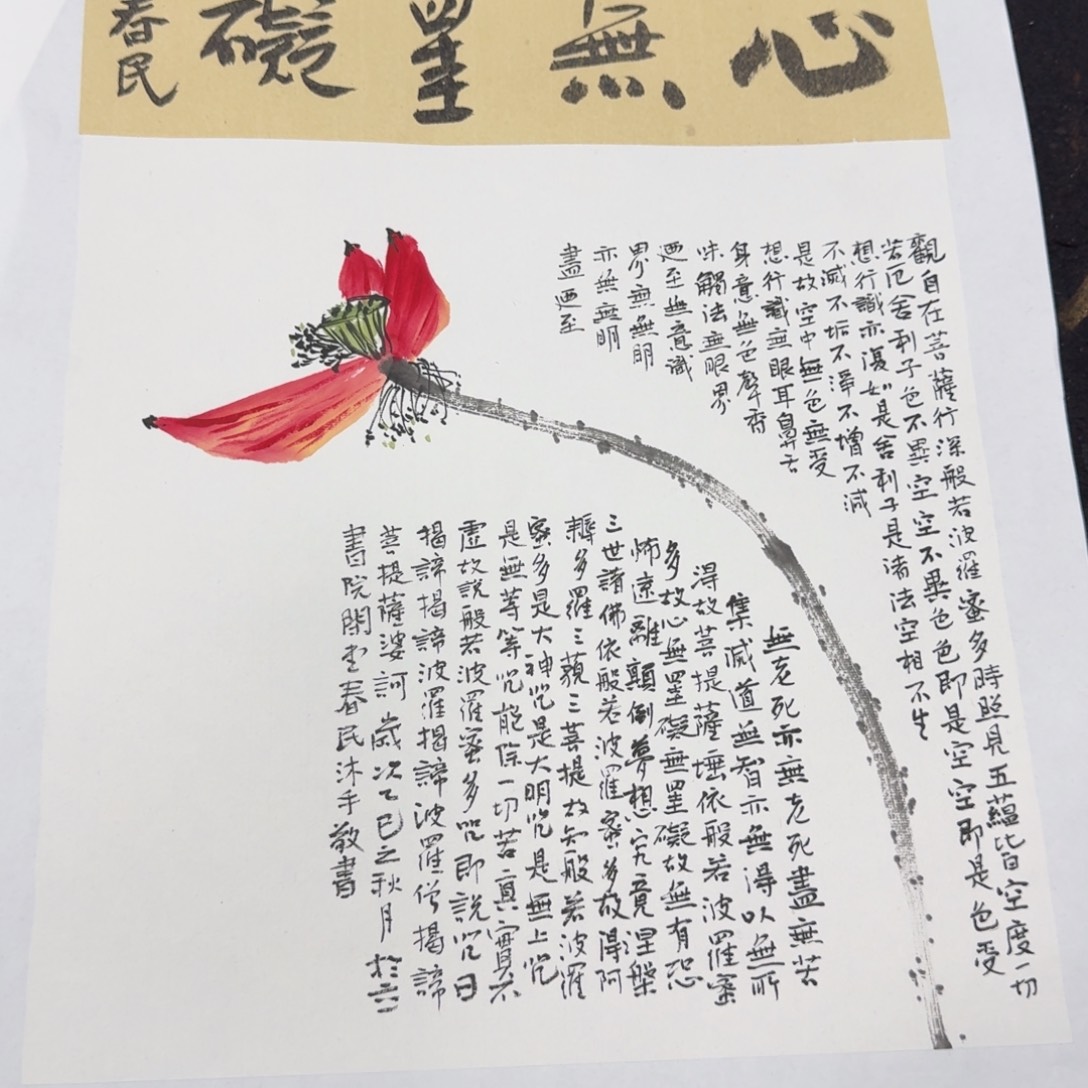 心無罣礙
春民
觀自在菩薩行深般若波羅蜜多時照見五蘊皆空度一切
苦厄舍利子色不異空空不異色色即是空空即是色受
想行識亦復如是舍利子是諸法空相不生
不滅不垢不淨不增不減
是故空中無色無受
想行識無眼耳鼻舌
身意無色聲香
味觸法無眼界
廼至無意識
界無無明
亦無無明
盡廼至
無老死亦無老死盡無苦
集滅道無智亦無得以無所
得故菩提薩埵依般若波羅蜜
多故心無罣礙無罣礙故無有恐
怖遠離顛倒夢想究竟涅槃
三世諸佛依般若波羅蜜多故得阿
耨多羅三藐三菩提故知般若波羅
蜜多是大神咒是大明咒是無上咒
是無等等咒能除一切苦真實不
虛故說般若波羅蜜多咒即說咒曰
揭諦揭諦波羅揭諦波羅僧揭諦
菩提薩婆訶歲次乙巳之秋月於
書院閑堂春民沐手敬書